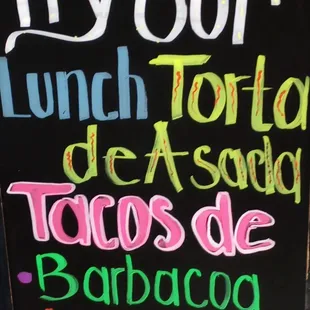 Try our
Lunch Torta
de Asada
Tacos de
• Barbacoa